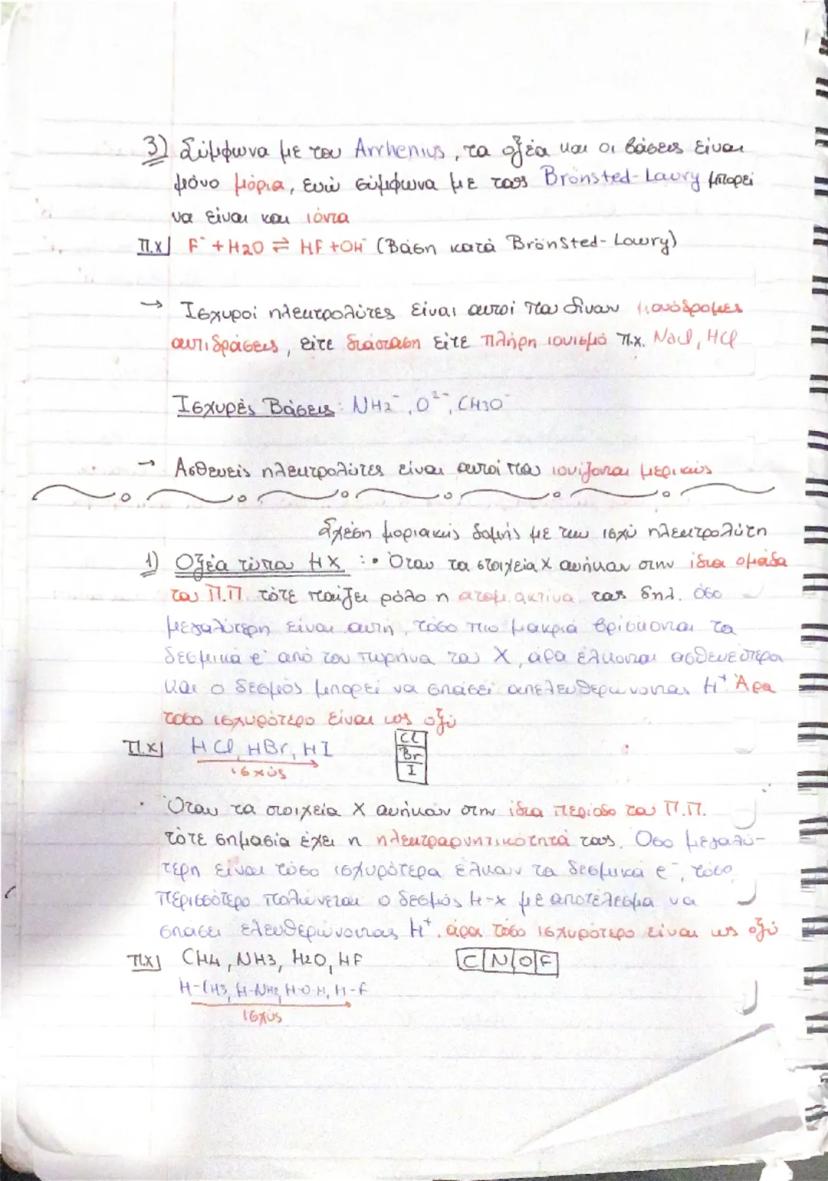 3) Σύμφωνα με τον Arrhenius, τα οξέα και οι βάσεις είναι
μόνο μόρια, ενώ σύμφωνα με τους Brönsted-Lawry μπορεί
να είναι και ιόντα
π.χ F⁻ + H2O ⇌ HF + OH⁻ (Βάση κατά Brönsted-Lowry)
→ Ισχυροί ηλεκτρολύτες είναι αυτοί που δίνουν μονόδρομες
αντιδράσεις, είτε διάσταση είτε πλήρη ιονισμό π.χ. NaCl, HCl
Ισχυρές Βάσεις: NH2⁻, O²⁻, CH3O⁻
→ Ασθενείς ηλεκτρολύτες είναι αυτοί που ιονίζονται μερικώς
Σχέση μοριακής δομής με την ισχύ ηλεκτρολύτη
1) Οξέα τύπου HX : • Όταν τα στοιχεία X ανήκουν στην ίδια ομάδα
του Π.Π τότε παίζει ρόλο η ατομ. ακτίνα τους δηλ. όσο
μεγαλύτερη είναι αυτή, τόσο πιο μακριά βρίσκονται τα
δεσμικά e⁻ από τον πυρήνα του X, άρα έλκονται ασθενέστερα
και ο δεσμός μπορεί να σπάσει απελευθερώνοντας H⁺ Άρα
τόσο ισχυρότερο είναι ως οξύ
π.χ HCl, HBr, HI
Cl
Br
I
ισχύς
• Όταν τα στοιχεία X ανήκουν στην ίδια περίοδο του Π.Π.
τότε σημασία έχει η ηλεκτραρνητικότητά τους. Όσο μεγαλύ-
τερη είναι τόσο ισχυρότερα έλκουν τα δεσμικά e⁻, τόσο
περισσότερο πολώνεται ο δεσμός H-X με αποτέλεσμα να
σπάσει ελευθερώνοντας H⁺. άρα τόσο ισχυρότερο είναι ως οξύ
π.χ CH4, NH3, H2O, HF
C N O F
H-CH3, H-NH2, H-O-H, H-F
ισχύς